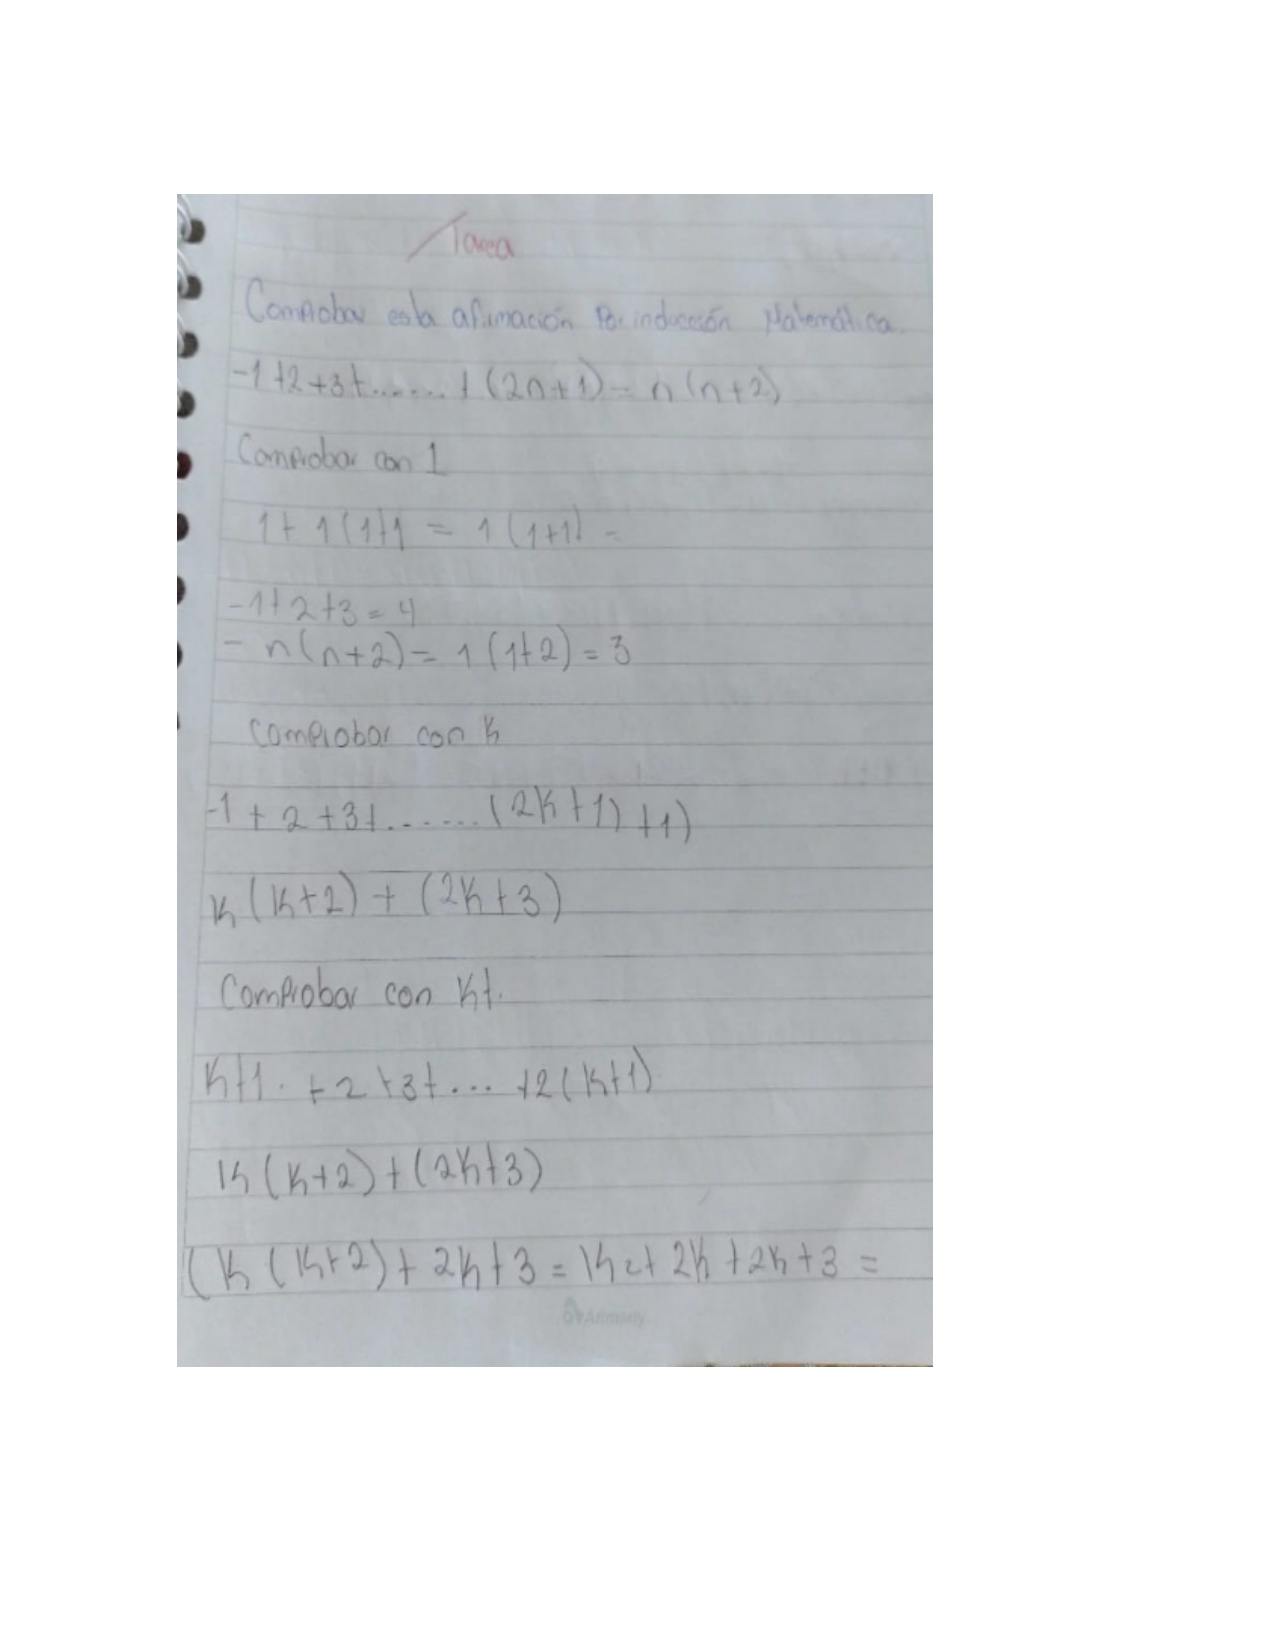 Tarea
Comprobar esta afimación Por inducción Matemática.
-1+2+3+......+(2n+1)= n(n+2)
Comprobar con 1
1+1(1)+1 = 1(1+1) =
-1+2+3=4
- n(n+2)= 1(1+2)=3
Comprobar con k
-1+2+3+......(2k+1)+1)
k(k+2)+(2k+3)
Comprobar con k+.
k+1. +2+3+... +2(k+1)
k(k+2)+(2k+3)
(k(k+2)+2k+3=k2+2k+2k+3=